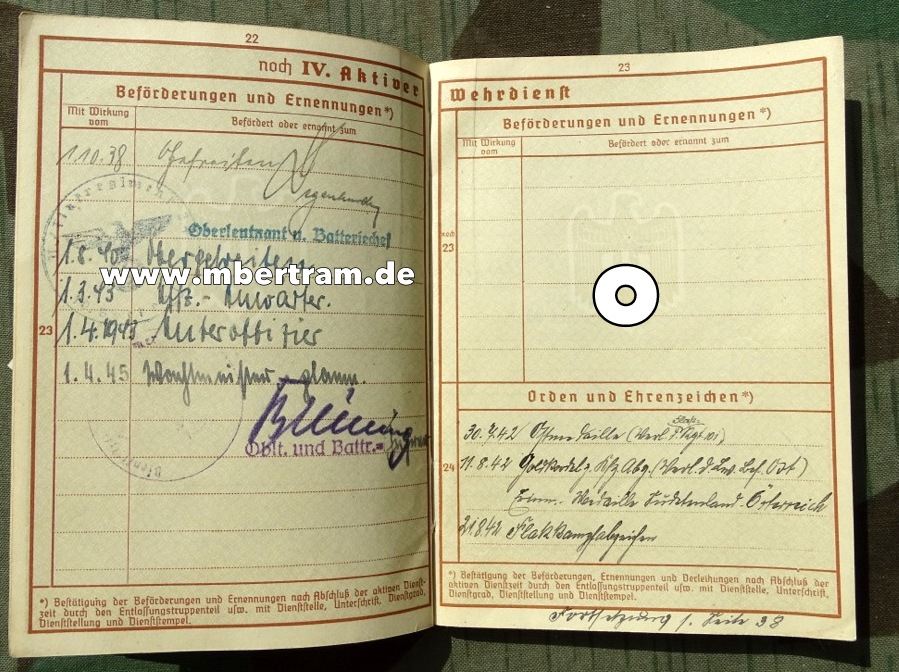 22
noch IV. Aktiver
Beförderungen und Ernennungen*)
Mit Wirkung vom
Befördert oder ernannt zum
1.10.38 Gefreiten
Oberleutnant u. Batteriechef
1.8.40 Obergefreiten
www.mbertram.de
1.3.43 Uffz.-Anwärter.
23
1.4.1943 Unteroffizier
1.4.45 Wachtmeister
Oblt. und Battr.-
*) Bestätigung der Beförderungen und Ernennungen nach Abschluß der aktiven Dienst-
zeit durch den Entlassungstruppenteil usw. mit Dienststelle, Unterschrift, Dienstgrad,
Dienststellung und Dienststempel.
23
Wehrdienst
Beförderungen und Ernennungen*)
Mit Wirkung vom
Befördert oder ernannt zum
noch
23
Orden und Ehrenzeichen*)
30.7.42 Ostmedaille (Verl.
24
11.8.42 Kfz Abz. (Verl. d. Lw. Bef. Ost)
Erinn.- Medaille Sudetenland - Österreich
21.8.42 Flakkampfabzeichen
*) Bestätigung der Beförderungen, Ernennungen und Verleihungen nach Abschluß der
aktiven Dienstzeit durch den Entlassungstruppenteil usw. mit Dienststelle, Unterschrift,
Dienstgrad, Dienststellung und Dienststempel.
Fortsetzung s. Seite 38